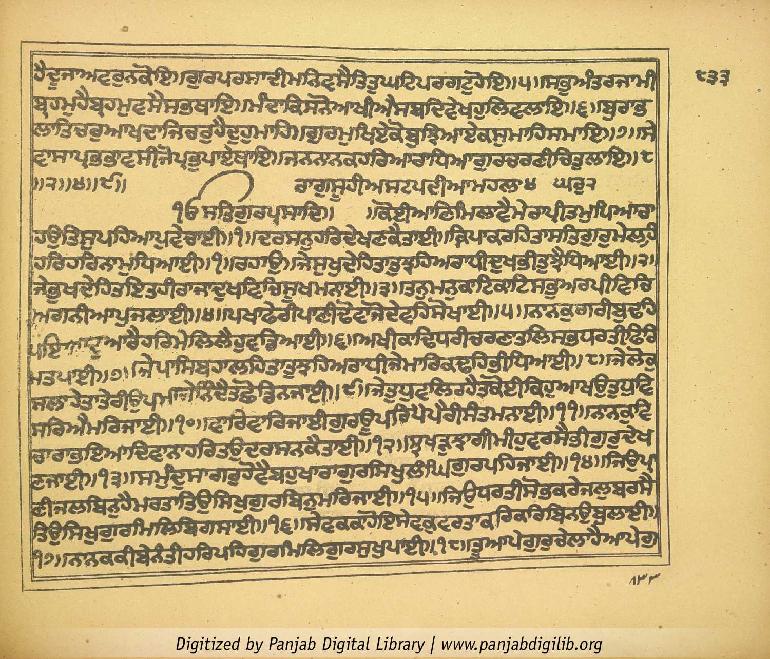 ੮੩੩
ਹੈਦੂਜਾਅਵਰੁਨਕੋਇ॥ਗੁਰਪਰਸਾਦੀਮਨਿਵਸੈਤਿਤੁਘਟਿਪਰਗਟੁਹੋਇ॥੫॥ਸਭੁਅੰਤਰਜਾਮੀ
ਬ੍ਰਹਮੁਹੈਬ੍ਰਹਮੁਵਸੈਸਭਥਾਇ॥ਮੰਦਾਕਿਸਨੋਆਖੀਐਸਬਦਿਵੇਖਹੁਲਿਵਲਾਇ॥੬॥ਬੁਰਾਭ
ਲਾਤਿਚਰੁਆਖਦਾਜਿਚਰੁਹੈਦੁਹੁਮਾਹਿ॥ਗੁਰਮੁਖਿਏਕੋਬੁਝਿਆਏਕਸੁਮਾਹਿਸਮਾਇ॥੭॥ਸੇ
ਵਾਸਾਪ੍ਰਭਭਾਵਸੀਜੋਪ੍ਰਭੁਪਾਏਥਾਇ॥ਜਨਨਾਨਕਹਰਿਆਰਾਧਿਆਗੁਰਚਰਣੀਚਿਤੁਲਾਇ॥੮
॥੨॥੪॥੯॥ ਰਾਗੁਸੂਹੀਅਸਟਪਦੀਆਮਹਲਾ੪ ਘਰੁ੨
ੴਸਤਿਗੁਰਪ੍ਰਸਾਦਿ॥ ॥ਕੋਈਆਣਿਮਿਲਾਵੈਮੇਰਾਪ੍ਰੀਤਮੁਪਿਆਰਾ
ਹਉਤਿਸੁਪਹਿਆਪੁਵੇਚਾਈ॥੧॥ਦਰਸਨੁਹਰਿਦੇਖਣਕੈਤਾਈ॥ਕ੍ਰਿਪਾਕਰਹਿਤਾਸਤਿਗੁਰੁਮੇਲਹਿ
ਹਰਿਹਰਿਨਾਮੁਧਿਆਈ॥੧॥ਰਹਾਉ॥ਜੇਸੁਖੁਦੇਹਿਤਤੁਝਹਿਅਰਾਧੀਦੁਖਿਭੀਤੁਝੈਧਿਆਈ॥੨॥
ਜੇਭੁਖਦੇਹਿਤਇਤਹੀਰਾਜਾਦੁਖਵਿਚਿਸੂਖਮਨਾਈ॥੩॥ਤਨੁਮਨੁਕਾਟਿਕਾਟਿਸਭੁਅਰਪੀਵਿਚਿ
ਅਗਨੀਆਪੁਜਲਾਈ॥੪॥ਪਖਾਫੇਰੀਪਾਣੀਢੋਵਾਜੋਦੇਵਹਿਸੋਖਾਈ॥੫॥ਨਾਨਕੁਗਰੀਬੁਢਹਿ
ਪਇਆਦੁਆਰੈਹਰਿਮੇਲਿਲੈਹੁਵਡਿਆਈ॥੬॥ਅਖੀਕਾਢਿਧਰੀਚਰਣਾਤਲਿਸਭਧਰਤੀਫਿਰਿ
ਮਤਪਾਈ॥੭॥ਜੇਪਾਸਿਬਹਾਲਹਿਤਾਤੁਝਹਿਅਰਾਧੀਜੇਮਾਰਿਕਢਹਿਭੀਧਿਆਈ॥੮॥ਜੇਲੋਕੁ
ਸਲਾਹੇਤਾਤੇਰੀਉਪਮਾਜੇਨਿੰਦੈਤਛੋਡਿਨਜਾਈ॥੯॥ਜੇਤੁਧੁਵਲਿਰਹੈਤਾਕੋਈਕਿਹੁਆਖਉਤੁਧੁਵਿ
ਸਰਿਐਮਰਿਜਾਈ॥੧੦॥ਵਾਰਿਵਾਰਿਜਾਈਗੁਰਊਪਰਿਪੈਪੈਰੀਸੰਤਮਨਾਈ॥੧੧॥ਨਾਨਕੁਵਿ
ਚਾਰਾਭਇਆਦਿਵਾਨਾਹਰਿਤਉਦਰਸਨਕੈਤਾਈ॥੧੨॥ਝਖੜੁਝਾਗੀਮੀਹੁਵਰਸੈਭੀਗੁਰੁਦੇਖ
ਣਜਾਈ॥੧੩॥ਸਮੁੰਦੁਸਾਗਰੁਹੋਵੈਬਹੁਖਾਰਾਗੁਰਸਿਖੁਲੰਘਿਗੁਰਪਹਿਜਾਈ॥੧੪॥ਜਿਉਪ੍ਰਾ
ਣੀਜਲਬਿਨੁਹੈਮਰਤਾਤਿਉਸਿਖੁਗੁਰਬਿਨੁਮਰਿਜਾਈ॥੧੫॥ਜਿਉਧਰਤੀਸੋਭਕਰੇਜਲੁਬਰਸੈ
ਤਿਉਸਿਖੁਗੁਰਮਿਲਿਬਿਗਸਾਈ॥੧੬॥ਸੇਵਕਕਾਹੋਇਸੇਵਕੁਵਰਤਾਕਰਿਕਰਿਬਿਨਉਬੁਲਾਈ॥
੧੭॥ਨਾਨਕਕੀਬੇਨੰਤੀਹਰਿਪਹਿਗੁਰਮਿਲਿਗੁਰਸੁਖੁਪਾਈ॥੧੮॥ਤੂਆਪੇਗੁਰੁਚੇਲਾਹੈਆਪੇਗੁ
Digitized by Panjab Digital Library | www.panjabdigilib.org